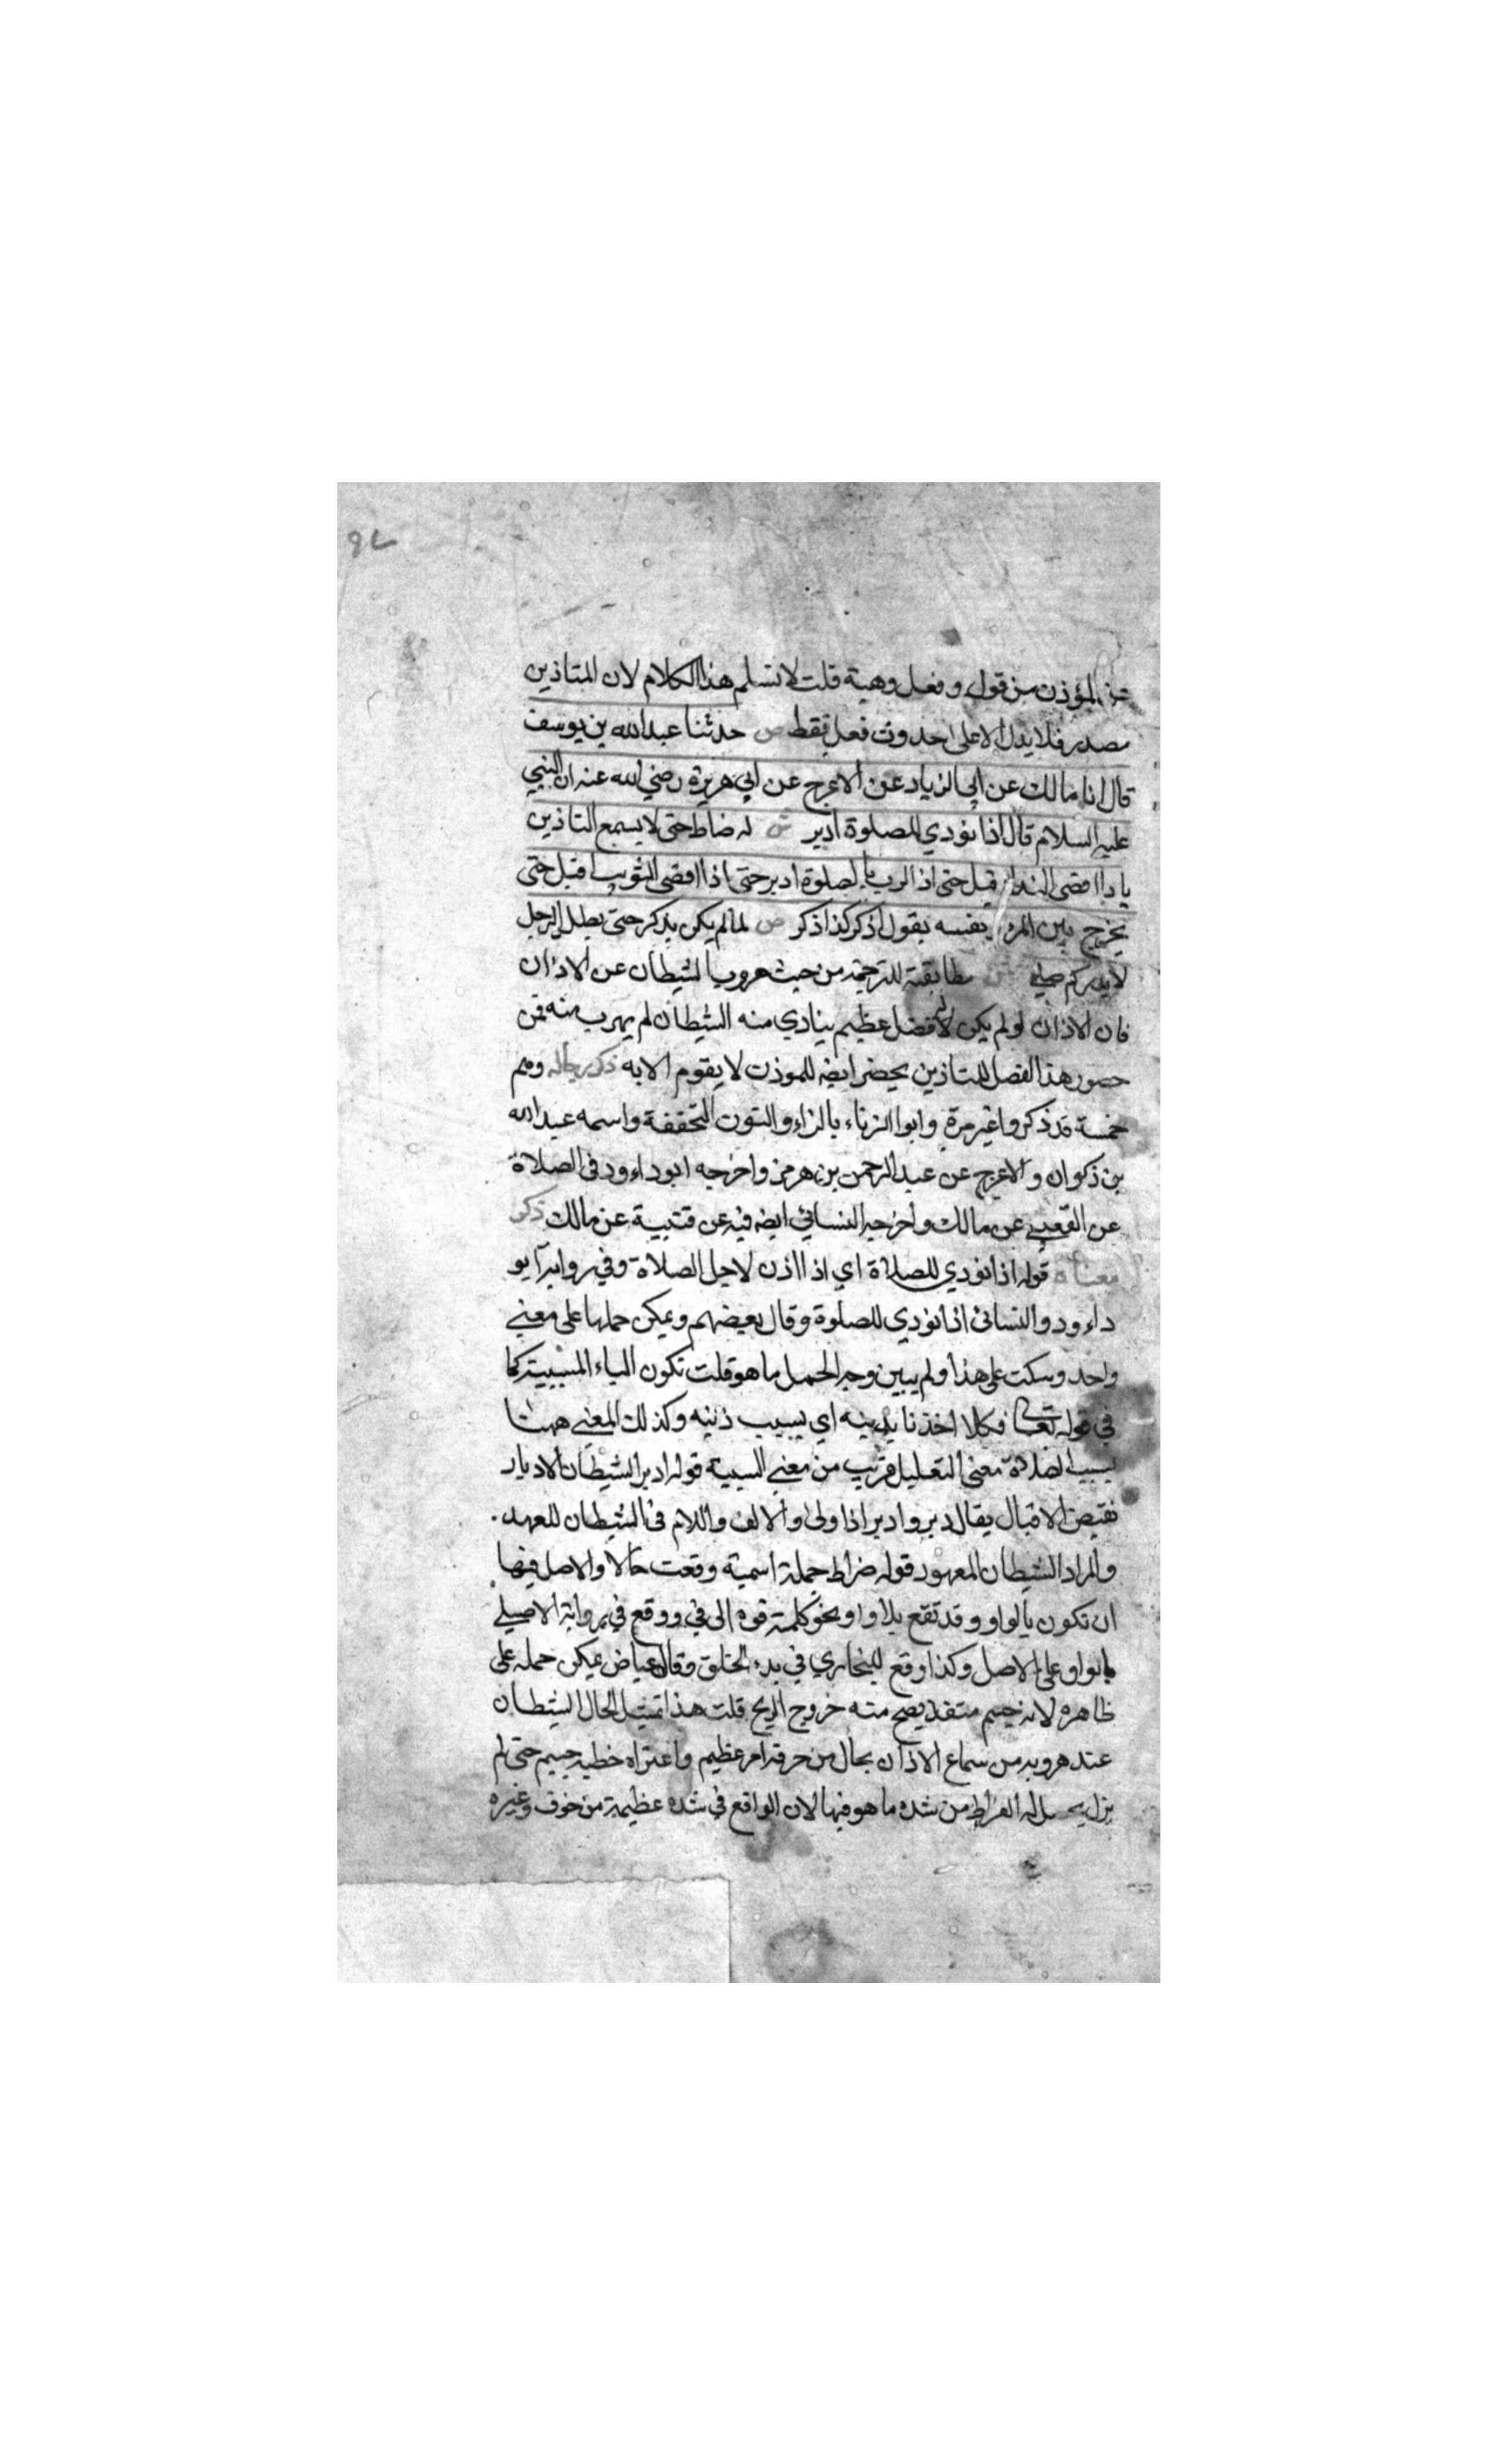 عن المؤذن من قول وفعل وهيئة قلت لا نسلم هذا الكلام لان التاذين
مصدر فلا يدل الا على حدوث فعل فقط ص حدثنا عبد الله بن يوسف
قال انا مالك عن ابي الزياد عن الاعرج عن ابي هريرة رضي الله عنه ان النبي
عليه السلام قال اذا نودي للصلوة ادبر ش له ضاط حتى لا يسمع التاذين
قضى الندا قبل حتى اذا بالصلوة ادبر حتى اذا اقضى التثويب اقبل حتى
يخرج بين المرء بنفسه يقول اذكر كذا اذكر ص لمالم يكن يذكر حتى يظل الرجل
لا يدري كم صلى ش مطابقته للترجمة من حيث هروب الشيطان عن الاذان
فان الاذان لو لم يكن له فضل عظيم ينادي منه الشيطان لم يهرب منه فمن
حصول هذا الفضل للتاذين يحضر ايضه للموذن لا يقوم الا به ذكر رجاله وهم
خمسة قد ذكروا غير مرة وابوا الزناء بالزاء والنون المخففة واسمه عبد الله
بن ذكوان والاعرج عن عبد الرحمن بن هرمز واخرجه ابو داءود في الصلاة
عن القعنبي عن مالك واخرجه النسائي ايضه فيه عن قتيبة عن مالك ذكر
معناه قوله اذا نودي للصلاة اي اذا اذن لاجل الصلاة وفي رواية ابو
داءود والنسائى اذا نودي للصلوة وقال بعيضهم ويمكن حملها على معنى
واحد وسكت على هذا ولم يبين وجه الحمل ما هو قلت تكون الباء المسببية كما
في قوله تعالى فكلا اخذنا بذنبه اي بسبب ذنبه وكذلك المعنى ههنا
بسبب الصلاة معنى التعليل قريب من معنى السببية قوله ادبر الشيطان الادبار
نقيض الاقبال يقال دبر وادبر اذا ولى والالف واللام فى الشيطان للعهد.
والمراد الشيطان المعهود قوله ضراط جملة اسمية وقعت حالا والاصل فيها
ان تكون بالواو وقد تقع بلا واو نحو كلمته فوه الى في ووقع في رواية الاصيلي
بالواو على الاصل وكذا وقع للبخاري في بدء الخلق وقال عياض يمكن حمله على
ظاهره لانه جسم متغذ يصح منه خروج الريح قلت هذا تمثيل لحال الشيطان
عند هروبه من سماع الاذان بحال من حرقه امر عظيم واعتراه خطب جسيم حتى لم
يزل يحصل له الضراط من شده ما هو فيها لان الواقع في شده عظيمة من خوف وغيره